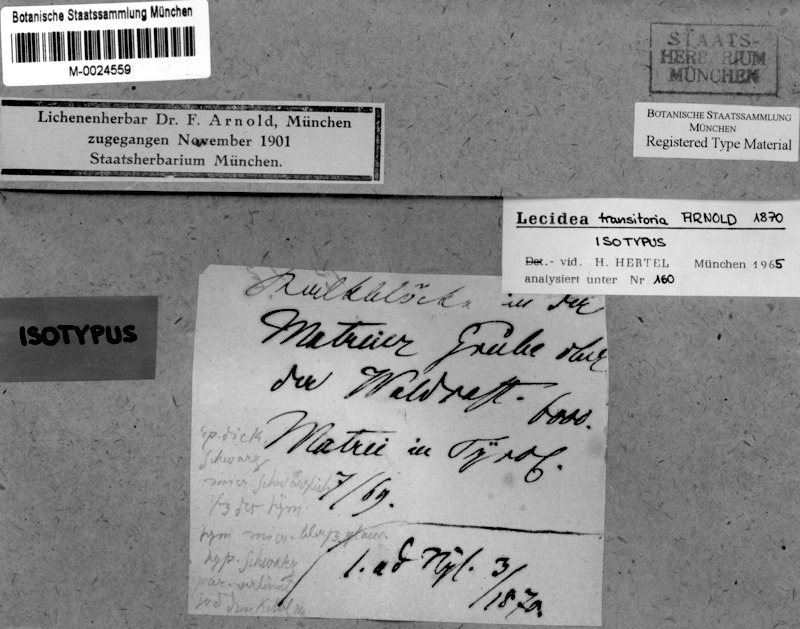 Botanische Staatssammlung München
M-0024559
STAATS-
HERBARIUM
MÜNCHEN
Lichenenherbar Dr. F. Arnold, München
zugegangen November 1901
Staatsherbarium München.
BOTANISCHE STAATSSAMMLUNG
MÜNCHEN
Registered Type Material
Lecidea transitoria ARNOLD 1870
ISOTYPUS
Det.- vid. H. HERTEL München 1965
analysiert unter Nr 160
ISOTYPUS
Kalkblöcke in der
Matreier Grube ober
der Waldrast. 6000.
Matrei in Tyrol.
7/69.
ep. dick
schwarz
micr. schwärzlich
hym micr.
hyp. schwarz
jod dunkelblau
l. ad Nyl. 3/1870.